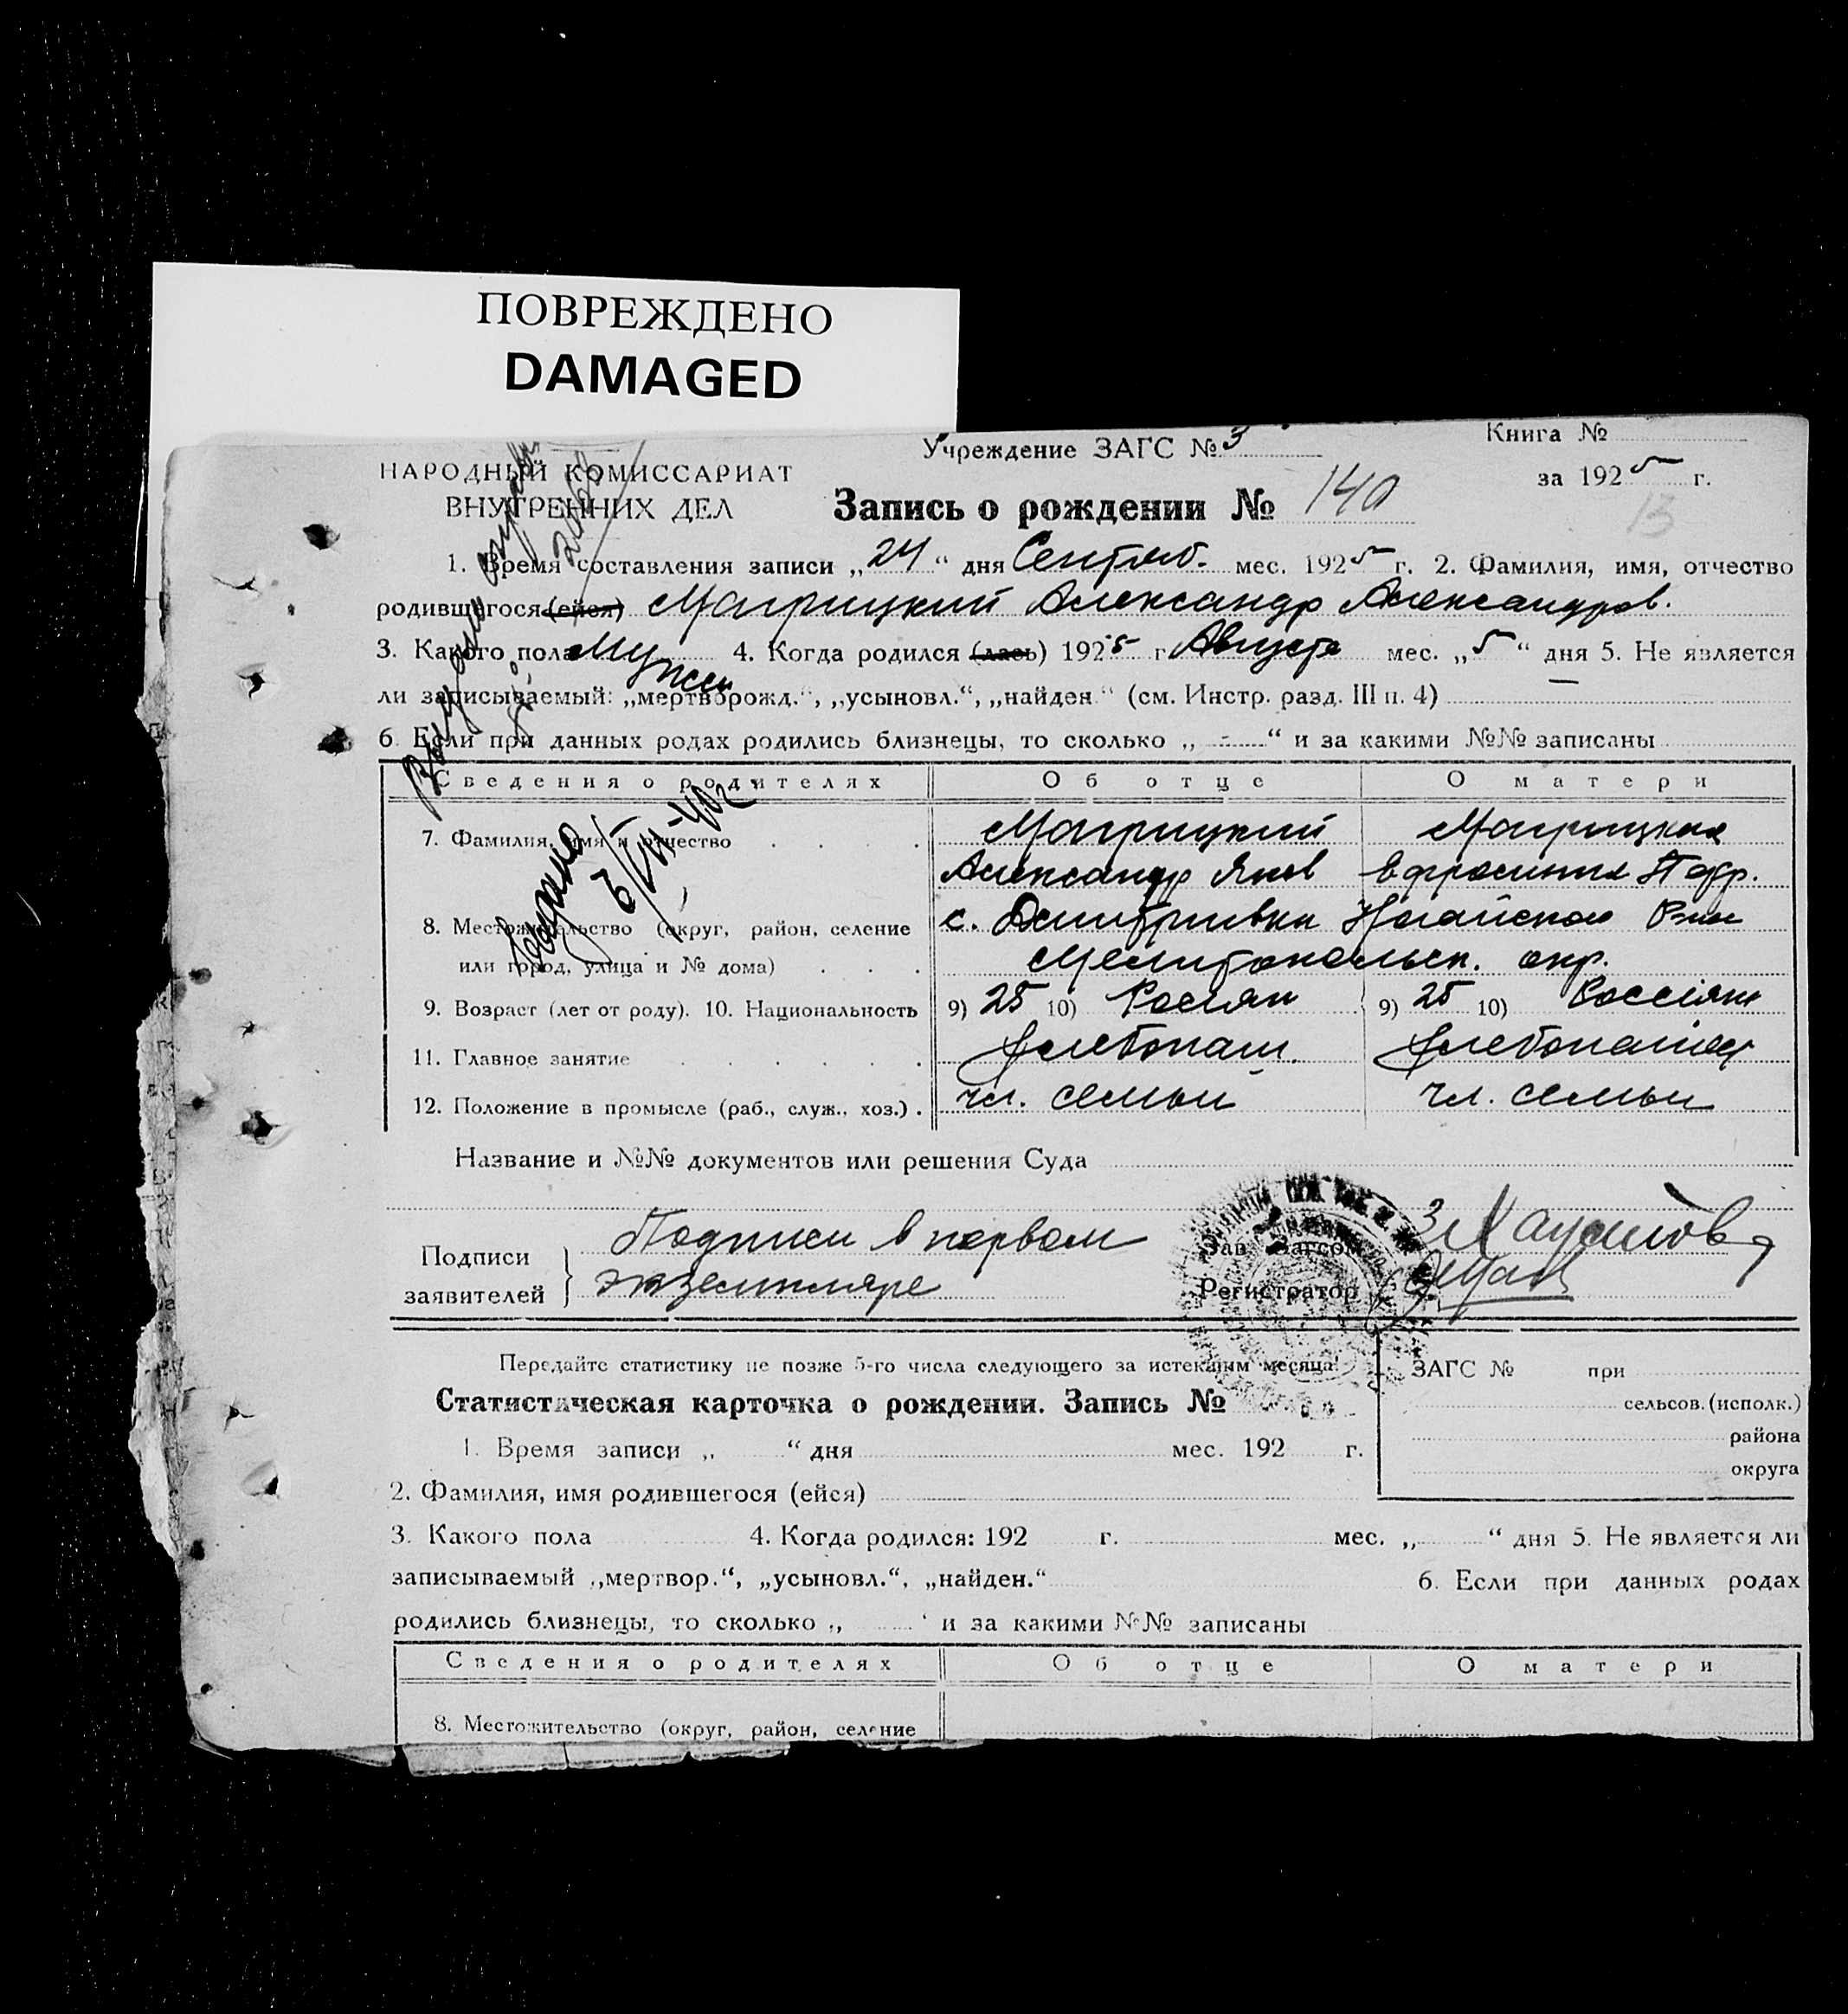 ПОВРЕЖДЕНО
DAMAGED
Учреждение ЗАГС № 3
Книга №
НАРОДНЫЙ КОМИССАРИАТ
ВНУТРЕННИХ ДЕЛ
за 1925 г.
Запись о рождении № 140
13
1. Время составления записи „24“ дня Сентяб. мес. 1925 г. 2. Фамилия, имя, отчество
родившегося (ейся) Магрицкий Александр Александров.
3. Какого пола Мужск 4. Когда родился (лась) 1925 г. Августа мес. „5“ дня 5. Не является
ли записываемый: „мертворожд.“, „усыновл.“, „найден.“ (см. Инстр. разд. III п. 4) —
6. Если при данных родах родились близнецы, то сколько „ - “ и за какими №№ записаны
Сведения о родителях Об отце О матери
7. Фамилия, имя и отчество Магрицкий Магрицкая
Александр Яков
8. Местожительство (округ, район, селение с. Дмитривки Ногайского Р-на
или город, улица и № дома) Мелитопольск. окр.
9. Возраст (лет от роду). 10. Национальность 9) 25 10) Россіян 9) 25 10) Россіянк
11. Главное занятие Хлебопаш. Хлебопашец
12. Положение в промысле (раб., служ., хоз.). чл. семьи чл. семьи
Название и №№ документов или решения Суда
Подписи заявителей Подписи в первом
экземпляре
Зав. Загсом
Регистратор
Передайте статистику не позже 5-го числа следующего за истекшим месяца.
ЗАГС № при
Статистическая карточка о рождении. Запись №
сельсов. (исполк.)
района
1. Время записи „ “ дня мес. 192 г.
округа
2. Фамилия, имя родившегося (ейся)
3. Какого пола 4. Когда родился: 192 г. мес. „ “ дня 5. Не является ли
записываемый „мертвор.“, „усыновл.“, „найден.“ 6. Если при данных родах
родились близнецы, то сколько „ “ и за какими №№ записаны
Сведения о родителях Об отце О матери
8. Местожительство (округ, район, селение